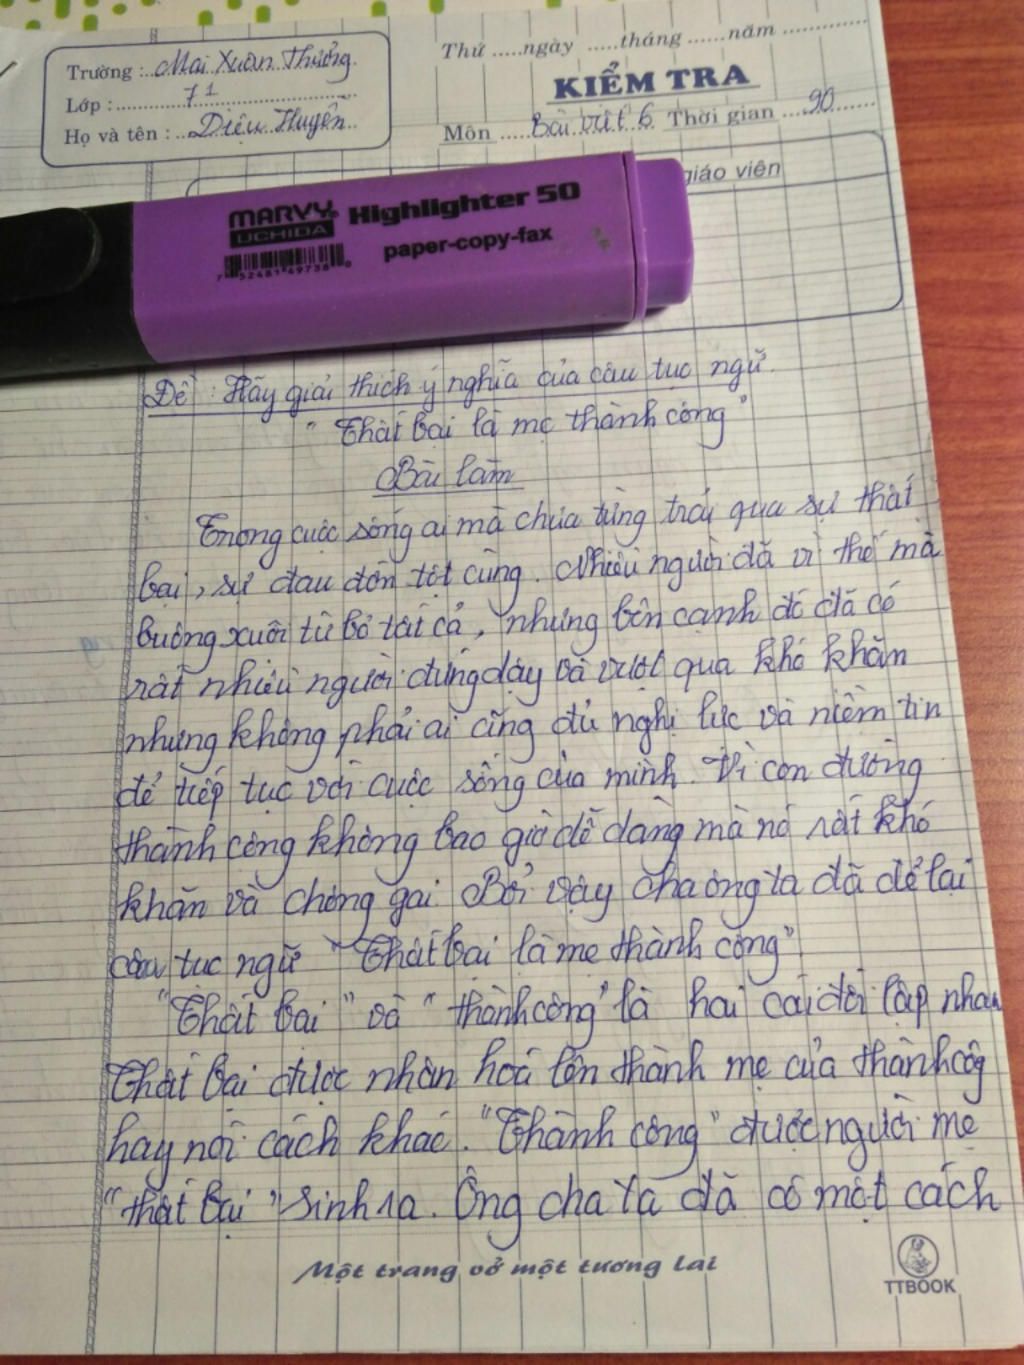 Trường : Mai Xuân Thưởng
Lớp : 7 1
Họ và tên : Diệu Huyền
Thứ .....ngày .....tháng ......năm ............
KIỂM TRA
Môn ..... Bài viết 6 Thời gian ...90......
giáo viên
MARVY UCHIDA Highlighter 50
paper-copy-fax
7 52481 49738 0
Đề : Hãy giải thích ý nghĩa của câu tục ngữ.
" Thất bại là mẹ thành công "
Bài làm
Trong cuộc sống ai mà chưa từng trải qua sự thất
bại, sự đau đớn tột cùng. Nhiều người đã vì thế mà
buông xuôi từ bỏ tất cả, nhưng bên cạnh đó đã có
rất nhiều người đứng dậy và vượt qua khó khăn
nhưng không phải ai cũng đủ nghị lực và niềm tin
để tiếp tục với cuộc sống của mình. Vì con đường
thành công không bao giờ dễ dàng mà nó rất khó
khăn và chông gai. Bởi vậy cha ông ta đã để lại
câu tục ngữ " Thất bại là mẹ thành công".
"Thất bại" và "thành công" là hai cái đối lập nhau
Thất bại được nhân hoá lên thành mẹ của thành côg
hay nói cách khác. "Thành công" được người mẹ
"thất bại" sinh ra. Ông cha ta đã có một cách
Một trang vở một tương lai
TTBOOK